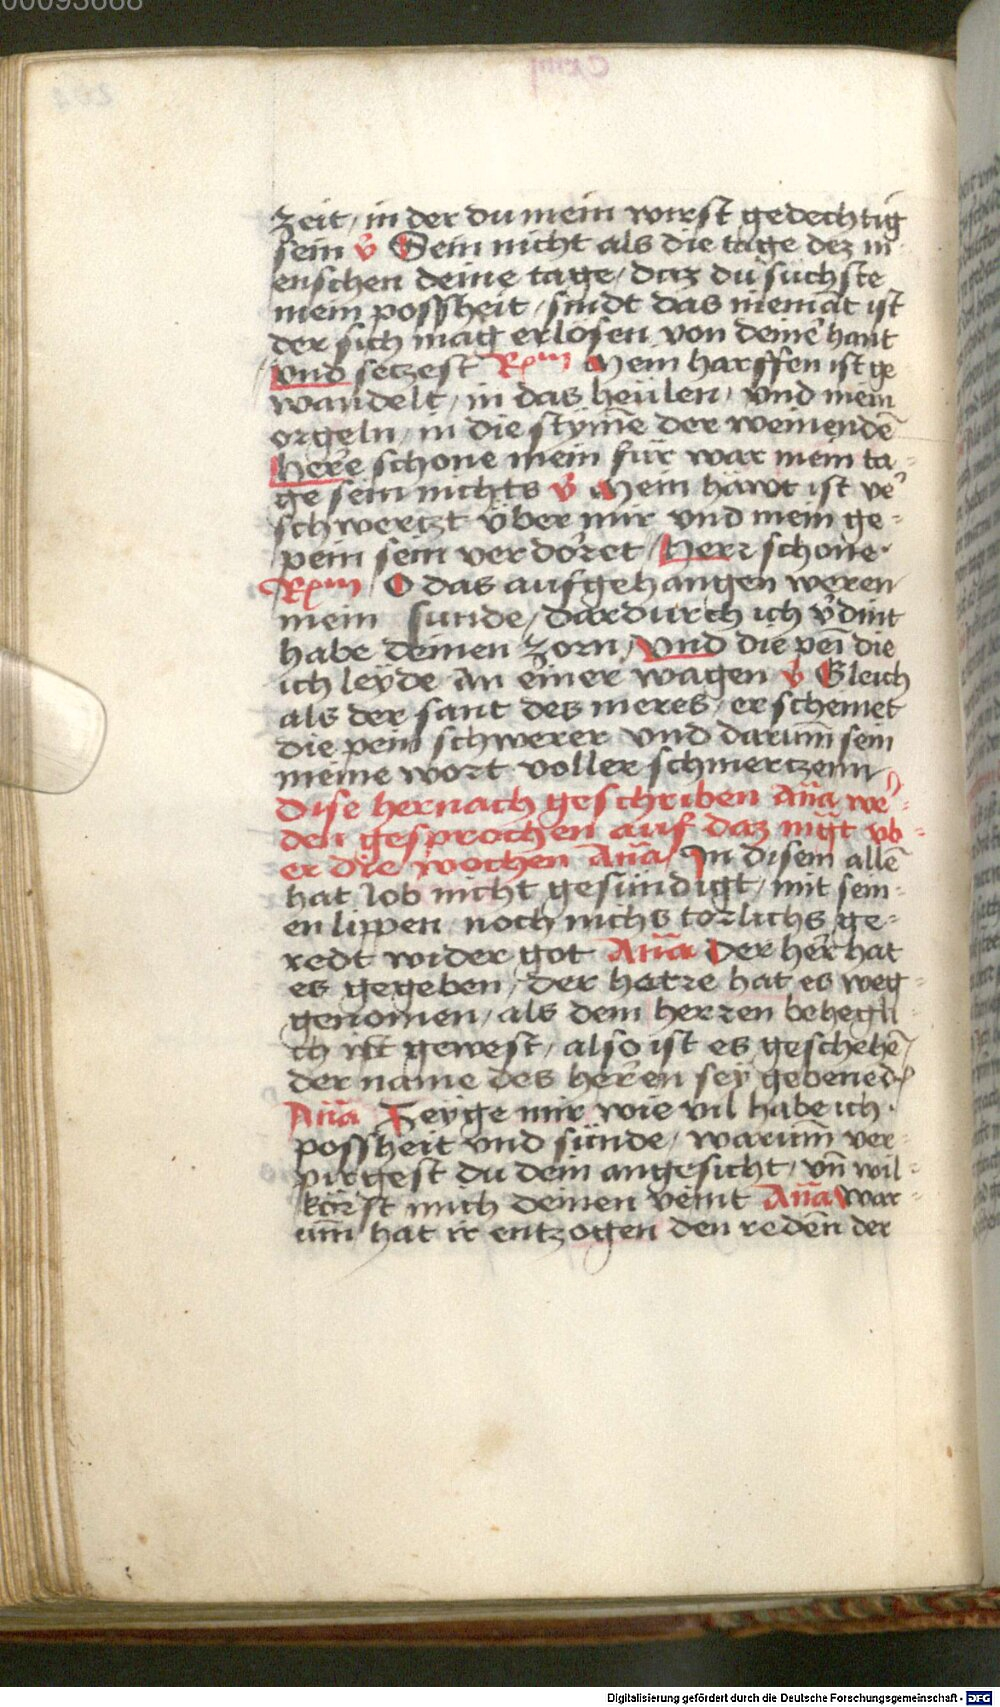 00093668
zeit / in der du mein wirst gedechtig
sein v̄ Sein nicht als die tage dez m
enschen deine tage / daz du suchste
mein possheit / sindt das niemāt ist
der sich mag erlosen von deine͛ hant
vnd seczest Rm Mein harffen ist ge
wandelt / in das heülen / vnd mein
orgeln / in die stȳme der weinendē
Herre schone mein für war mein ta-
ge sein nichts v̄ Mein hawt ist ve͛
schwertzt über mir vnd mein ge-
pein sein verdorret / Herr schone
Rm O das aufgehangen weren
mein sunde / dardurch ich v͛dint
habe deinen zorn / vnd die pen̄ die
ich leyde an einer wagen v̄ Gleich
als der sant des meres / erscheinet
die pein schwerer vnd darum̄ sein
meine wort voller schmertzenn
Dise hernach geschriben Añā we͛-
den gesprochen auf daz mg̃t vb-
er die wochen Añā In disem allē
hat Iob nicht gesündigt / mit sein-
en lippen noch nichs torlichs ge-
redt wider got Añā Der herr hat
es gegeben / der herre hat es weg-
genomen / als dem herren behegli-
ch ist gewest / also ist es geschehē /
der name des herren sey gebened͛
Añā Zeyge mir wie vil habe ich
possheit vnd sünde / warum̄ ver-
pirgest du dein angesicht / vn̄ wil-
körst mich deinen veint Añā War-
um̄ hat ir entzogen den reden der
Digitalisierung gefördert durch die Deutsche Forschungsgemeinschaft - DFG